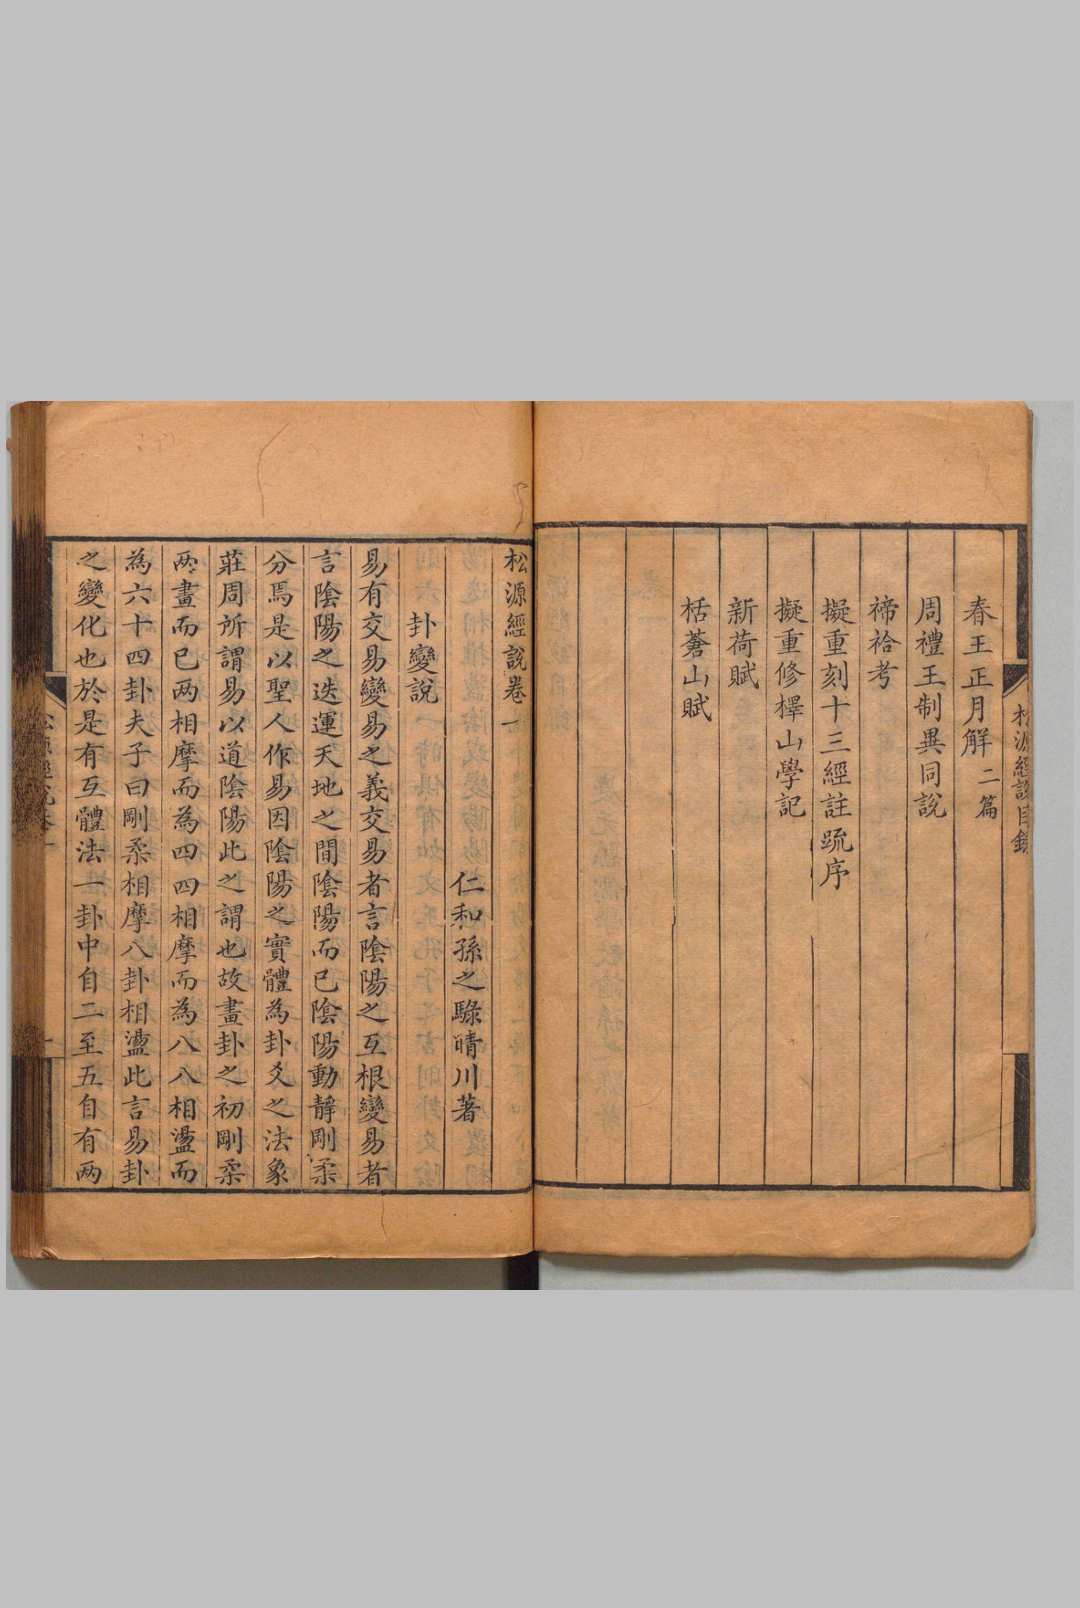 松源經說目錄
春王正月解 二篇
周禮王制異同說
禘祫考
擬重刻十三經註疏序
擬重修檡山學記
新荷賦
栝蒼山賦
松源經說卷一
仁和孫之騄晴川著
卦變說
易有交易變易之義交易者言陰陽之互根變易者
言陰陽之迭運天地之間陰陽而已陰陽動靜剛柔
分焉是以聖人作易因陰陽之實體為卦爻之法象
莊周所謂易以道陰陽此之謂也故畫卦之初剛柔
兩畫而已两相摩而為四四相摩而為八八相盪而
為六十四卦夫子曰剛柔相摩八卦相盪此言易卦
之變化也於是有互體法一卦中自二至五自有两
松源經說卷一
一